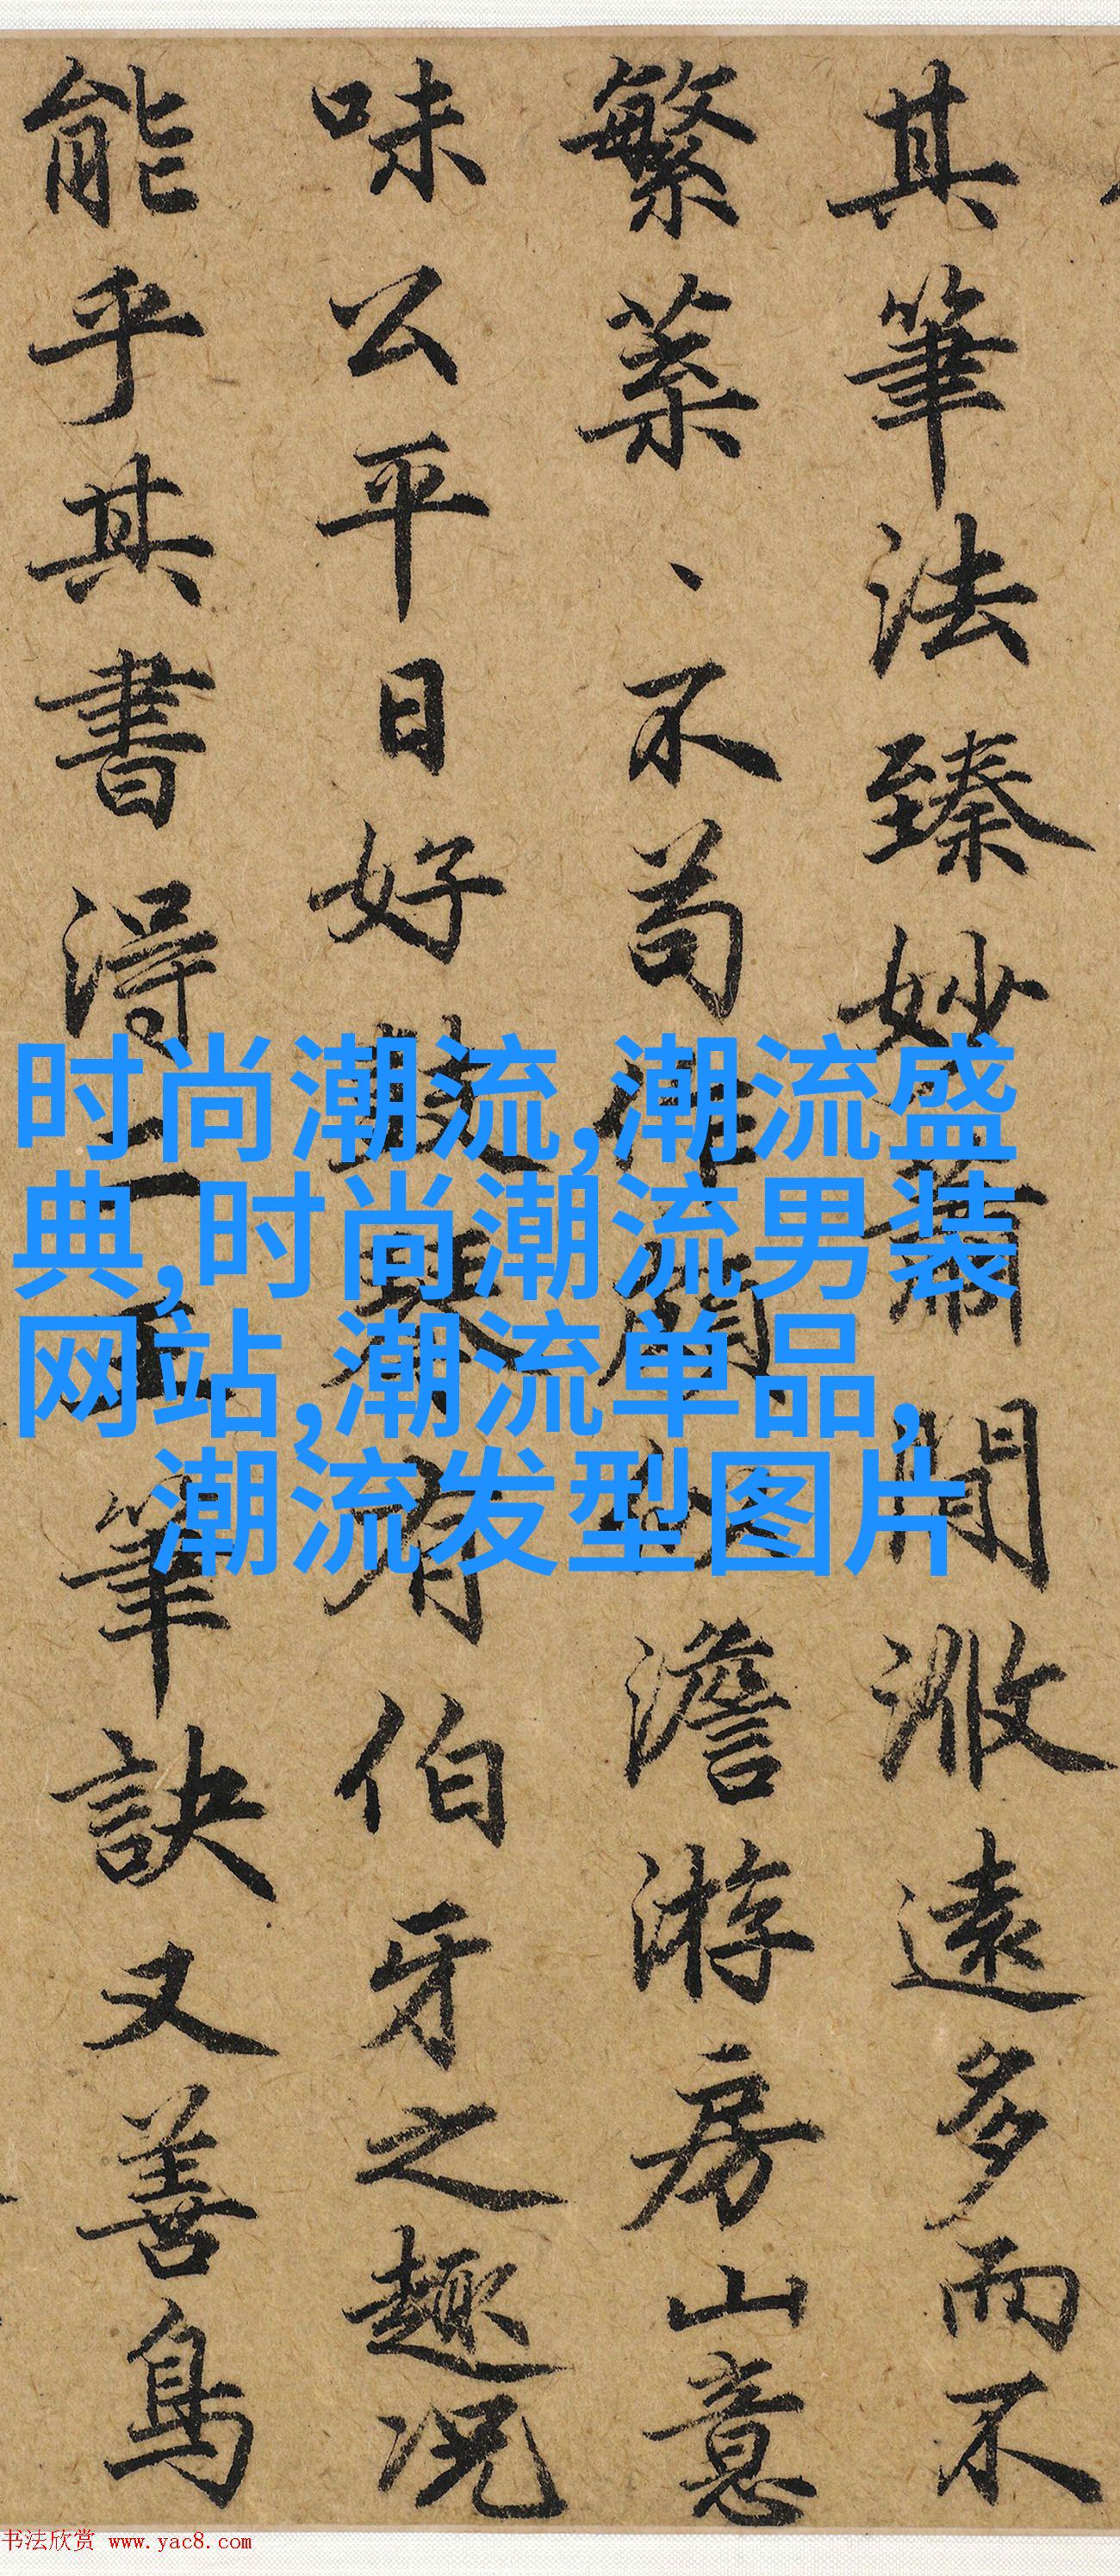 其筆法臻妙蕭間遠多而不
繁、不苟作澹游房山意
味公平日好鼓琴有伯牙之趣况
能乎其書得二王筆訣又善鳥
时尚潮流,潮流盛
典,时尚潮流男装
网站,潮流单品,
潮流发型图片
书法欣赏 www.yac8.com